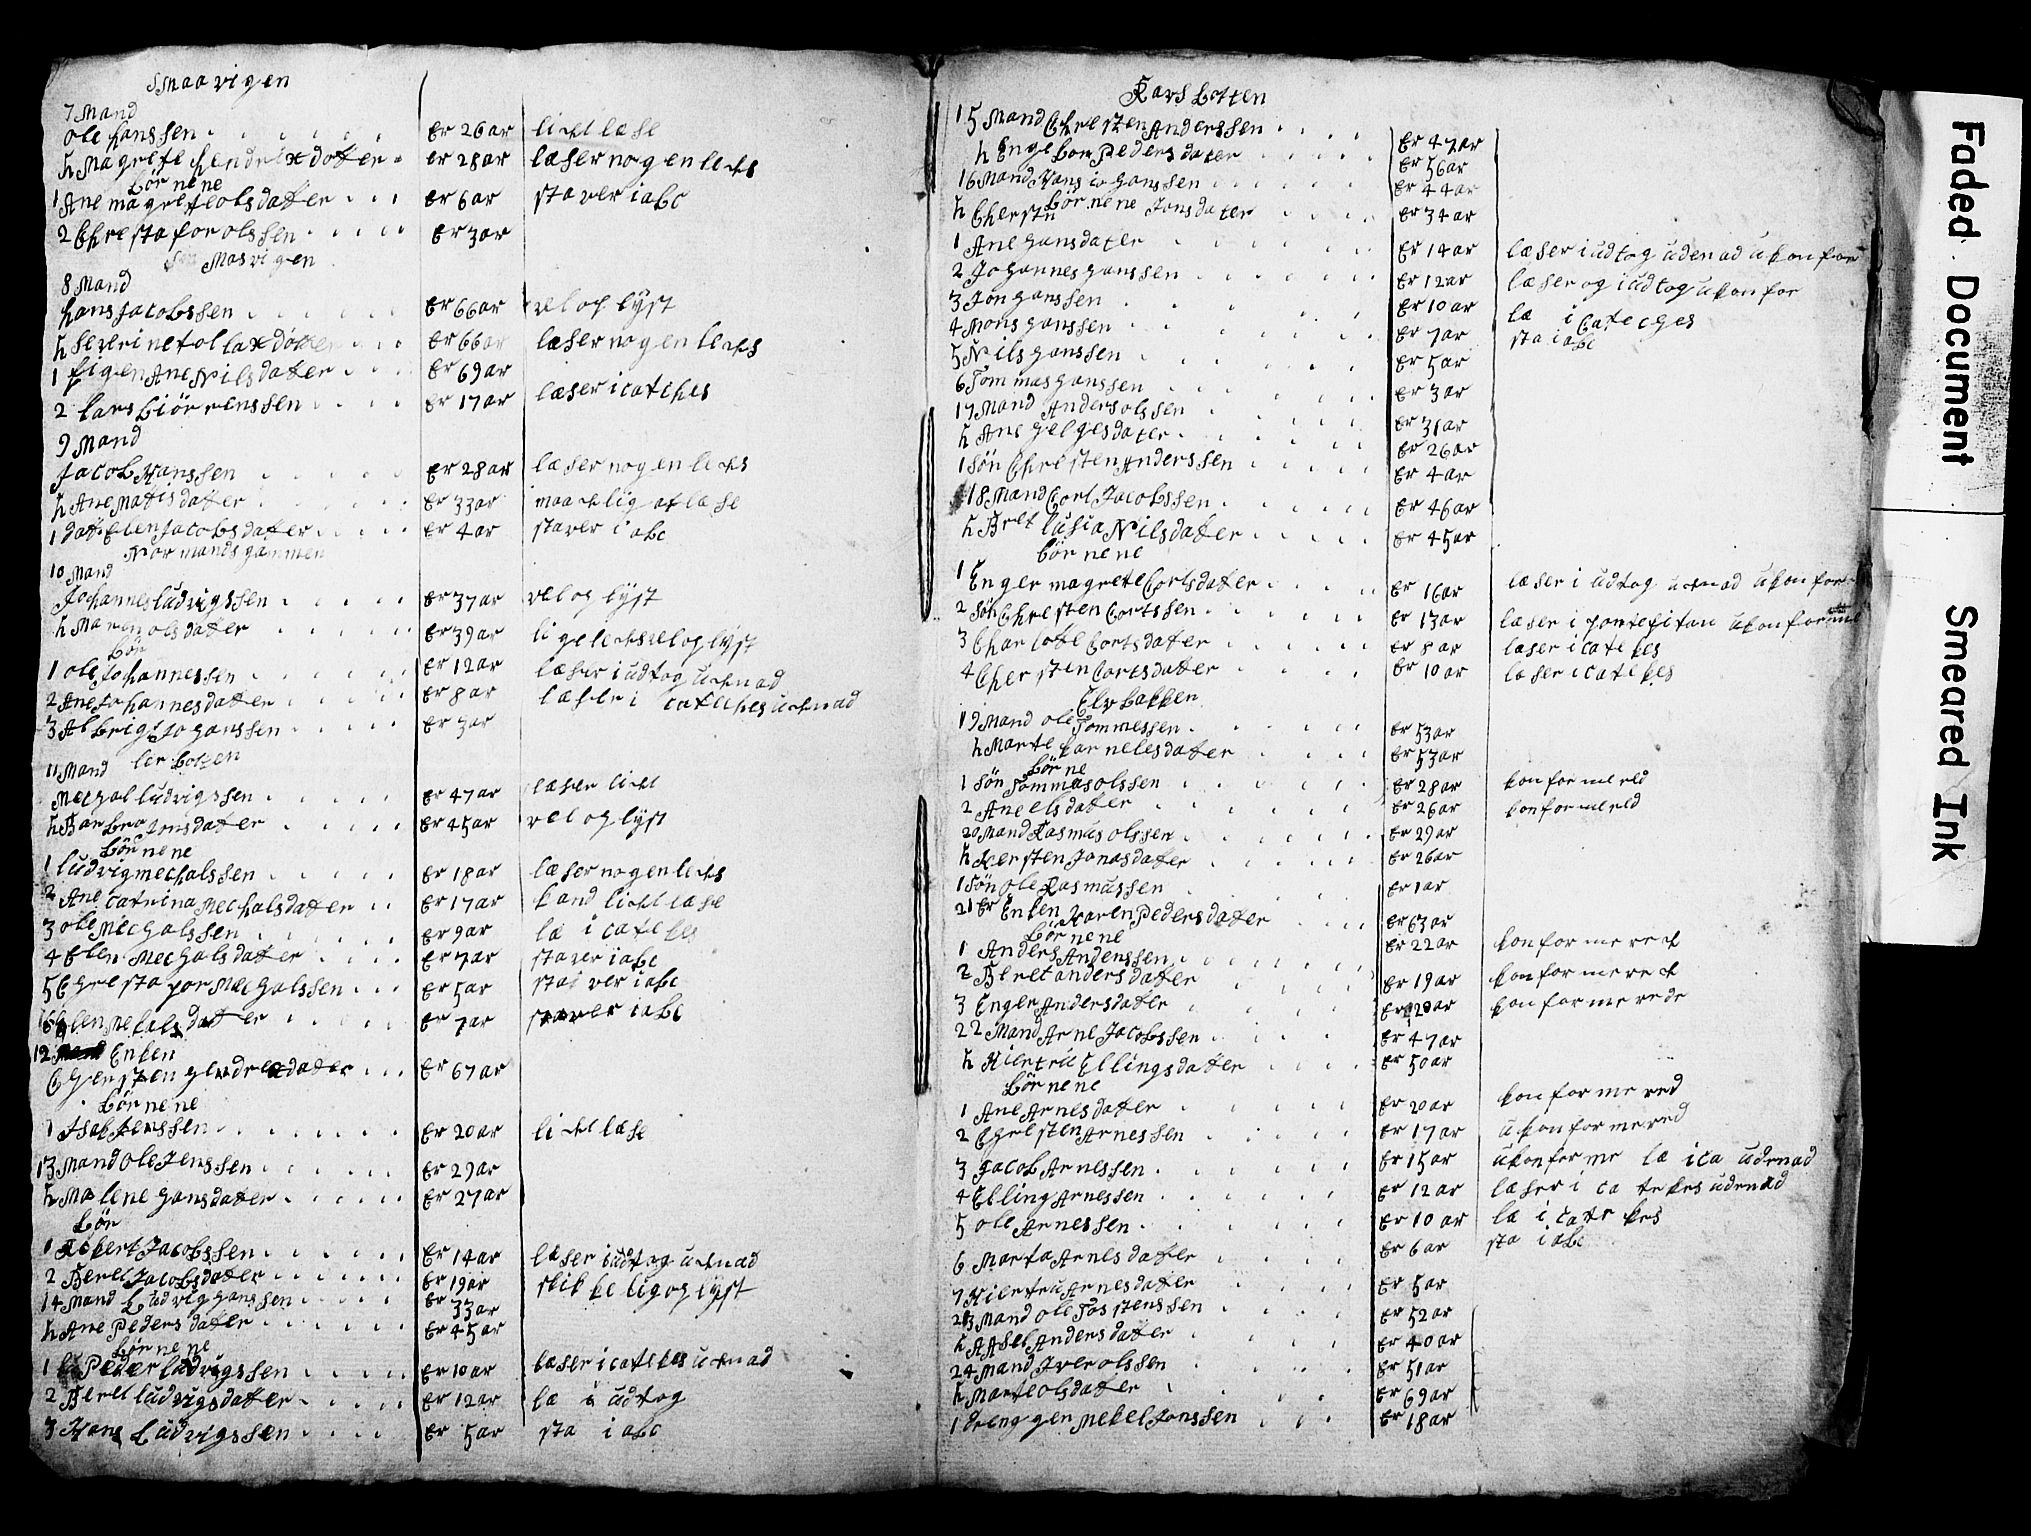 Smaavigen
7 Mand
ole hanssen . . . . . . Er 26 ar licht læse
h Magrete hendrixdotter . er 28 ar læser nogenlechs
børnene
1 Ane magrete olsdatter . . . Er 6 ar staver i abc
2 Chrestafor olssen . . . . Er 3 ar
Masvigen
8 Mand
hans Jacobssen . . . . . Er 66 ar vel oplyst
h Severine tollaxdotter . . Er 66 ar læser nogenlechs
1 pigen Ane Nilsdatter . . . Er 69 ar
2 Lars biörrenssen . . . . Er 17 ar læser i catches
9 Mand
Jacob Hanssen . . . . . Er 28 ar læser nogenlechs
h Ane Matisdatter . . . . . Er 33 ar maadelig at læse
1 datt Elen Jacobsdatter . . . . Er 4 ar staver i abc
Normandsgammen
10 Mand
Johannes ludvigssen . . . . Er 37 ar vel oplyst
h Maren olsdatter . . . . . Er 39 ar ligelechs vel oplyst
bør
1 ole Johannessen . . . . . Er 12 ar læser i udtog udenad
2 Ane Johannesdatter . . . . Er 8 ar læser i cateches udenad
3 Albrigt Joganssen . . . . Er 3 ar
11 Mand lerbotten
Mechal ludvigssen . . . . Er 47 ar læser licht
h Barbro Jonsdatter . . . . Er 45 ar vel oplyst
børnene
1 ludvig mechalssen . . . . Er 18 ar læser nogenlechs
2 Ane catrina Mechalsdatter . . Er 17 ar kand licht læse
3 ole Mechalssen . . . . . Er 9 ar læ i catekes
4 Elen Mechalsdatter . . . . Er 7 ar staver i abc
5 Chrestapor Mechalssen . . . Er 5 ar staver i abc
6 Elen Mekalsdatter . . . . Er 7 ar staver i abc
12 Enken
Chersten gendrexdatter . . . Er 67 ar
børnene
1 Isak Jenssen . . . . . . Er 20 ar licht læse
13 Mand ole Jenssen . . . . . Er 29 ar
h Malene Gansdatter . . . . Er 27 ar
bør
1 Ekert Jacobssen . . . . . Er 14 ar læser i udtog udenad
2 Beret Jacobsdatter . . . . . Er 19 ar skikkelig oplyst
14 Mand Ludvig ganssen . . . . Er 33 ar
h Ane Pedersdatter . . . . . Er 45 ar
børnene
1 Peder ludvigssen . . . . . Er 10 ar læser i catekes udenad
2 Beret ludvigsdatter . . . . Er 12 ar læ i udtog
3 Hans Ludvigssen . . . . Er 5 ar sta i abc
Ravsbotten
15 Mand Chresten Anderssen . . . . Er 47 ar
h Engebor Pedersdater . . . . . Er 56 ar
16 Mand Hans Joganssen . . . . . . Er 44 ar
h Cherstn Jonsdater . . . . Er 34 ar
børnene
1 Ane gansdater . . . . . . Er 14 ar læser i udtog udenad ukonfor
2 Johannes ganssen . . . . . . Er 12 ar læser og i udtog ukonfor
3 Jon ganssen . . . . . Er 10 ar læ i Catecges
4 Mons ganssen . . . . . Er 7 ar sta i abc
5 Nils ganssen . . . . . Er 5 ar
6 Tommas ganssen . . . . . Er 3 ar
17 Mand Anders olssen . . . . . Er 31 ar
h Ane gelgesdater . . . . . . Er 26 ar
1 Søn Chresten Anderssen . . . . . Er 4 ar
18 Mand Cort Jacobssen . . . . . Er 46 ar
h Bret lusia Nilsdatter . . . . . Er 45 ar
børnene
1 Enger magrete Cortsdatter . . . . Er 16 ar læser i udtog udenad ukonfor
2 Søn Chresten Cortssen . . . . . Er 13 ar læser i pontopitan ukonformr
3 Charlote Cortsdatter . . . . . Er 8 ar læser i catekes
4 Chersten Cortsdatter . . . . . Er 10 ar læser i catekes
Elvbakken
19 Mand ole Tommessen . . . . . Er 53 ar
h Marte kornelesdatter . . . . Er 53 ar
børne
1 Søn Tommas olssen . . . . . . Er 28 ar konfor me red
2 Ane elsdatter . . . . . . Er 26 ar konformered
20 Mand Rasmus olssen . . . . . Er 29 ar
h Kersten Jonasdatter . . . . . Er 26 ar
1 Søn ole Rasmussen . . . . . Er 1 ar
21 Er Enken Karen Pedersdatter . . . . Er 63 ar
børnene
1 Anders Anderssen . . . . . . Er 22 ar konformered
2 Beret andersdatter . . . . . Er 19 ar konformered
3 Enger Andersdatter . . . . . Er 20 ar konformerede
22 Mand Arne Jacobssen . . . . Er 47 ar
h Kiertru Ellingsdatter . . . . Er 50 ar
børnene
1 Ane Arnesdatter . . . . . Er 20 ar konfor me red
2 Chresten Arnessen . . . . . Er 17 ar ukonformered
3 Jacob Arnessen . . . . . . Er 15 ar ukonforme læ i ca udenad
4 Elling Arnessen . . . . . . Er 12 ar læser i ca tekes udenad
5 ole Arnessen . . . . . . Er 10 ar læ i catekes
6 Marta Arnesdatter . . . . Er 6 ar sta i abc
7 Kiertru Arnesdatter . . . . Er 5 ar
23 Mand ole Tosstenssen . . . . Er 52 ar
h Asel Andersdatter . . . . . Er 40 ar
24 Mand Iver olssen . . . . . Er 51 ar
h Marte olsdatter . . . . . . Er 69 ar
1 Drenggen Mekel Jonssen . . . Er 18 ar
Faded Document
Smeared Ink